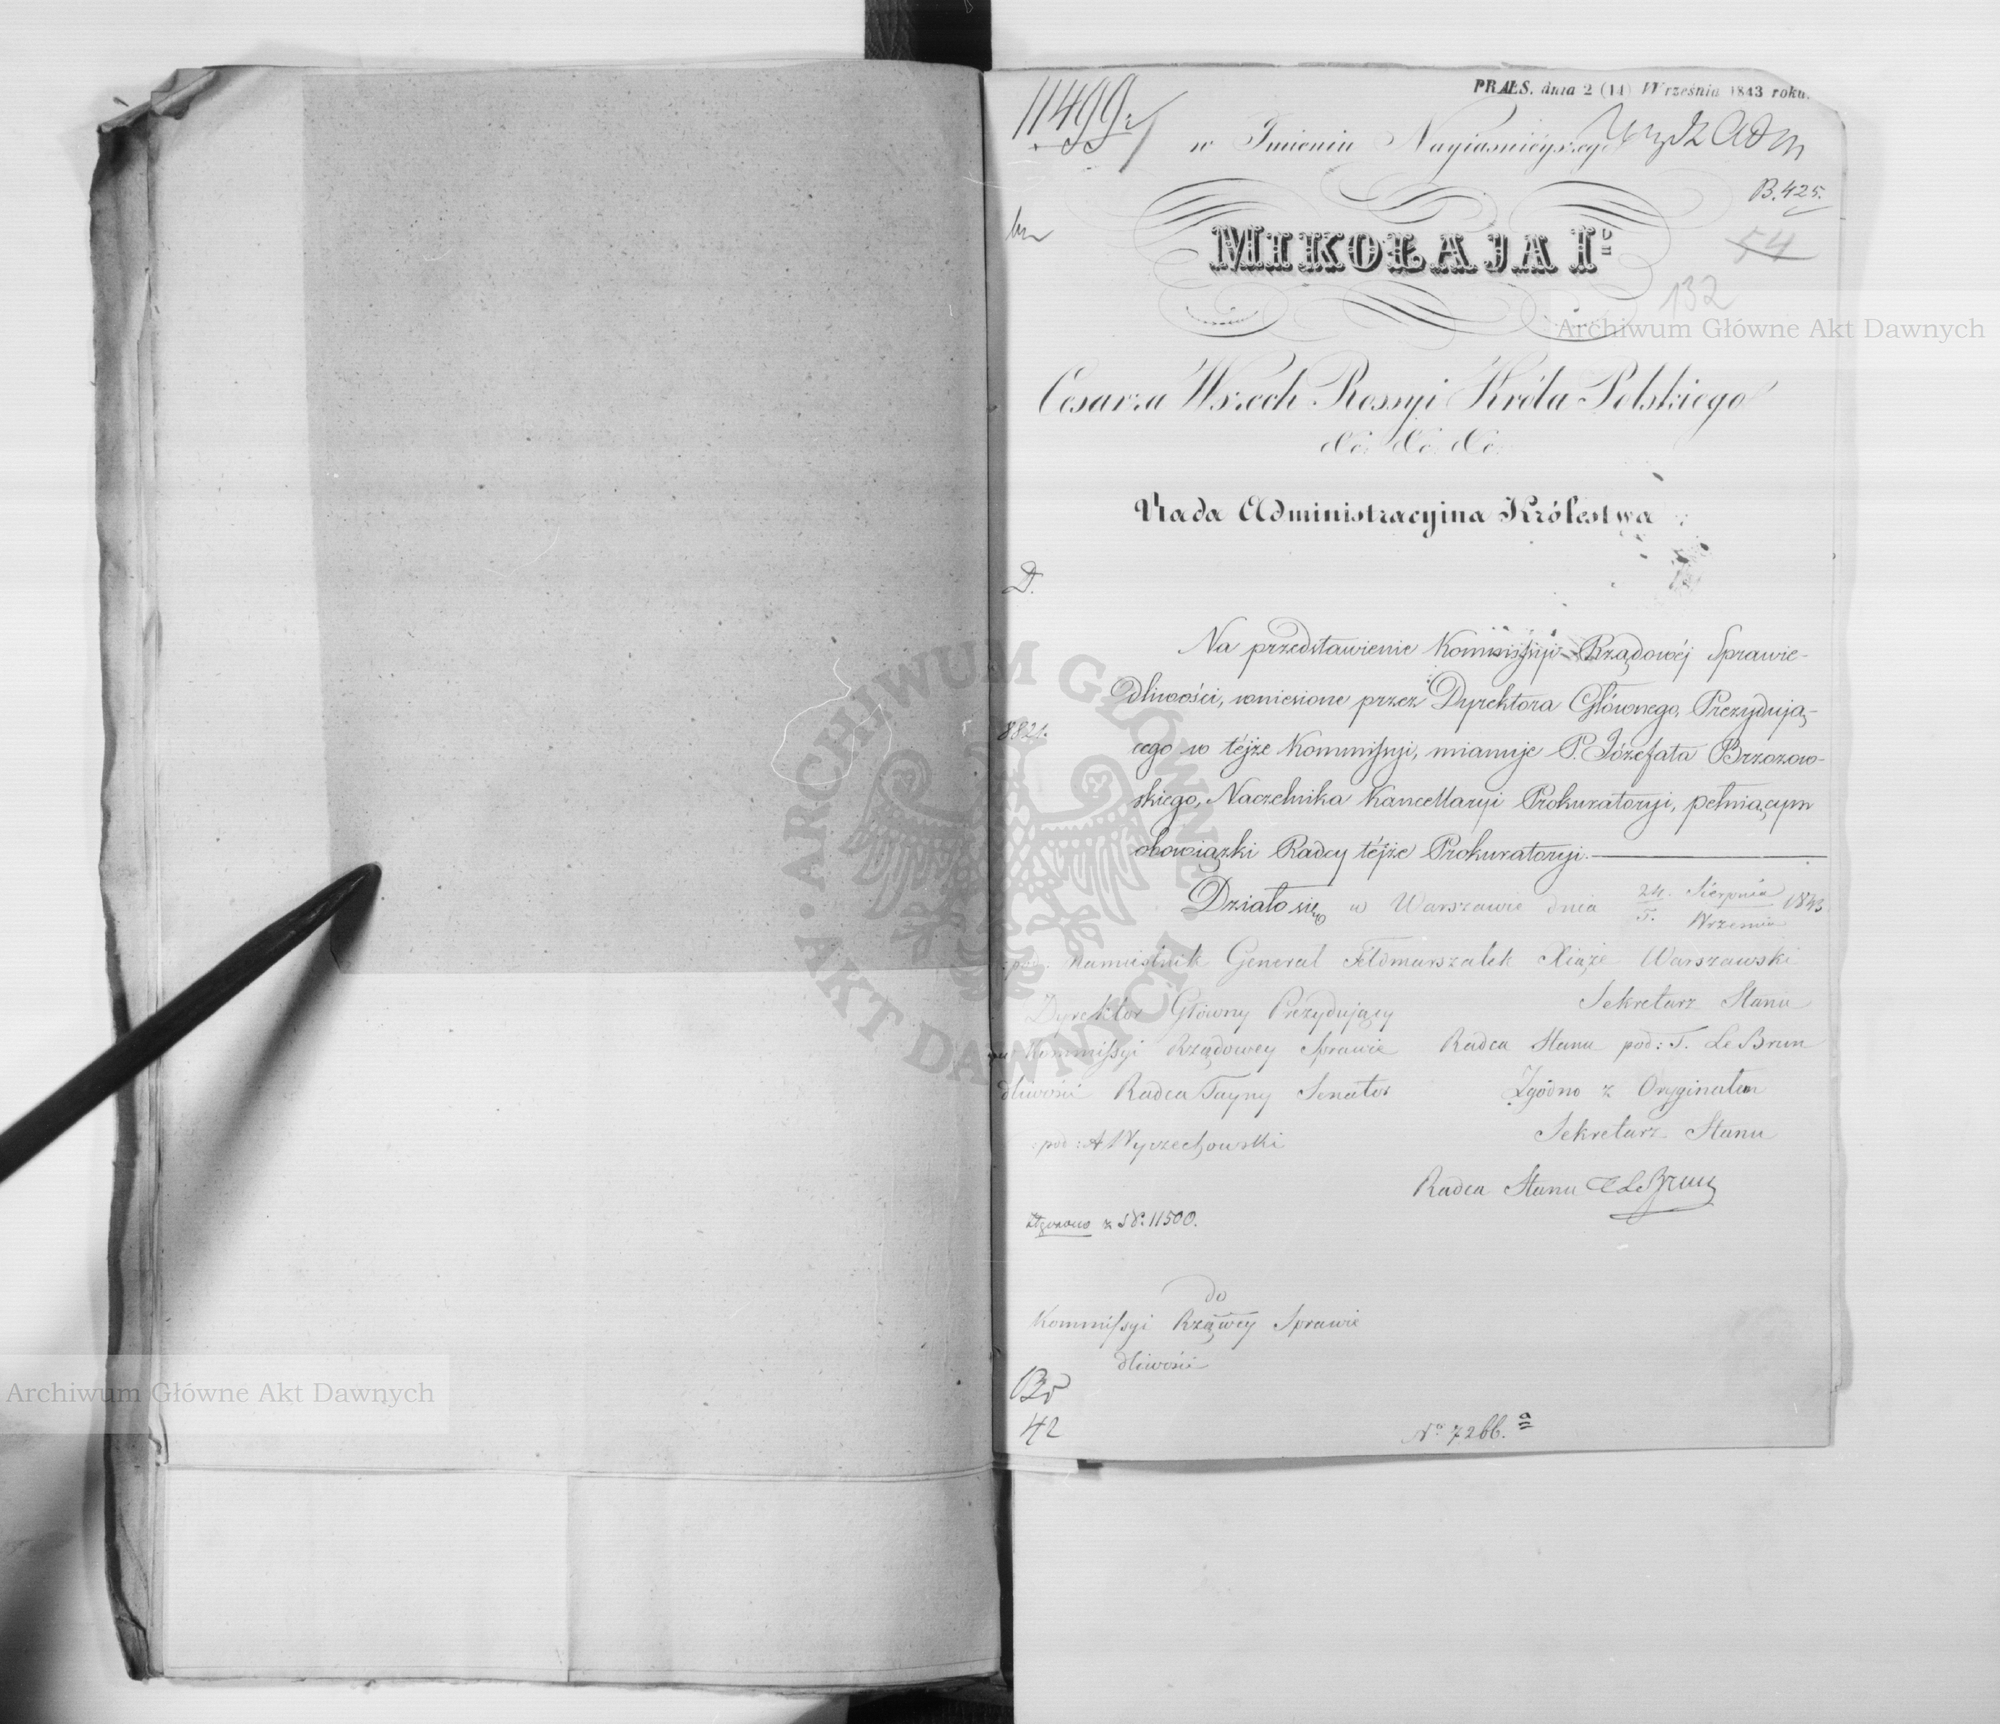 PRÆS. dnia 2 (14) Września 1843 roku.
11499
w Imieniu Nayiaśnieyszego
B. 425.
54
MIKOŁAJA Iº
132
Archiwum Główne Akt Dawnych
Cesarza Wszech Rossyi Króla Polskiego
&c. &c. &c.
Rada Administracyjna Królestwa
D.
Na przedstawienie Kommissyi Rządowéj Sprawie-
dliwości, wniesione przez Dyrektora Głównego, Prezydują-
8821.
cego w téjże Kommissyi, mianuje P. Józefata Brzozow-
skiego, Naczelnika Kancellaryi Prokuratoryi, pełniącym
obowiązki Radcy téjże Prokuratoryi.
Działo się w Warszawie dnia 24. Sierpnia / 5. Wrzesnia 1843
Namiestnik Generał Feldmarszałek Xiąże Warszawski
Dyrektor Główny Prezydujący
Sekretarz Stanu
w Kommissyi Rządowey Sprawie
Radca Stanu pod: T. Le Brun
dliwości Radca Tayny Senator
Zgodno z Oryginałem
: pod : A Wyczechowski
Sekretarz Stanu
Radca Stanu T Le Brun
z Nº 11500.
do
Kommissyi Rządwey Sprawie
dliwości
42
Nº 7266.
ARCHIWUM GŁÓWNE
AKT DAWNYCH
Archiwum Główne Akt Dawnych